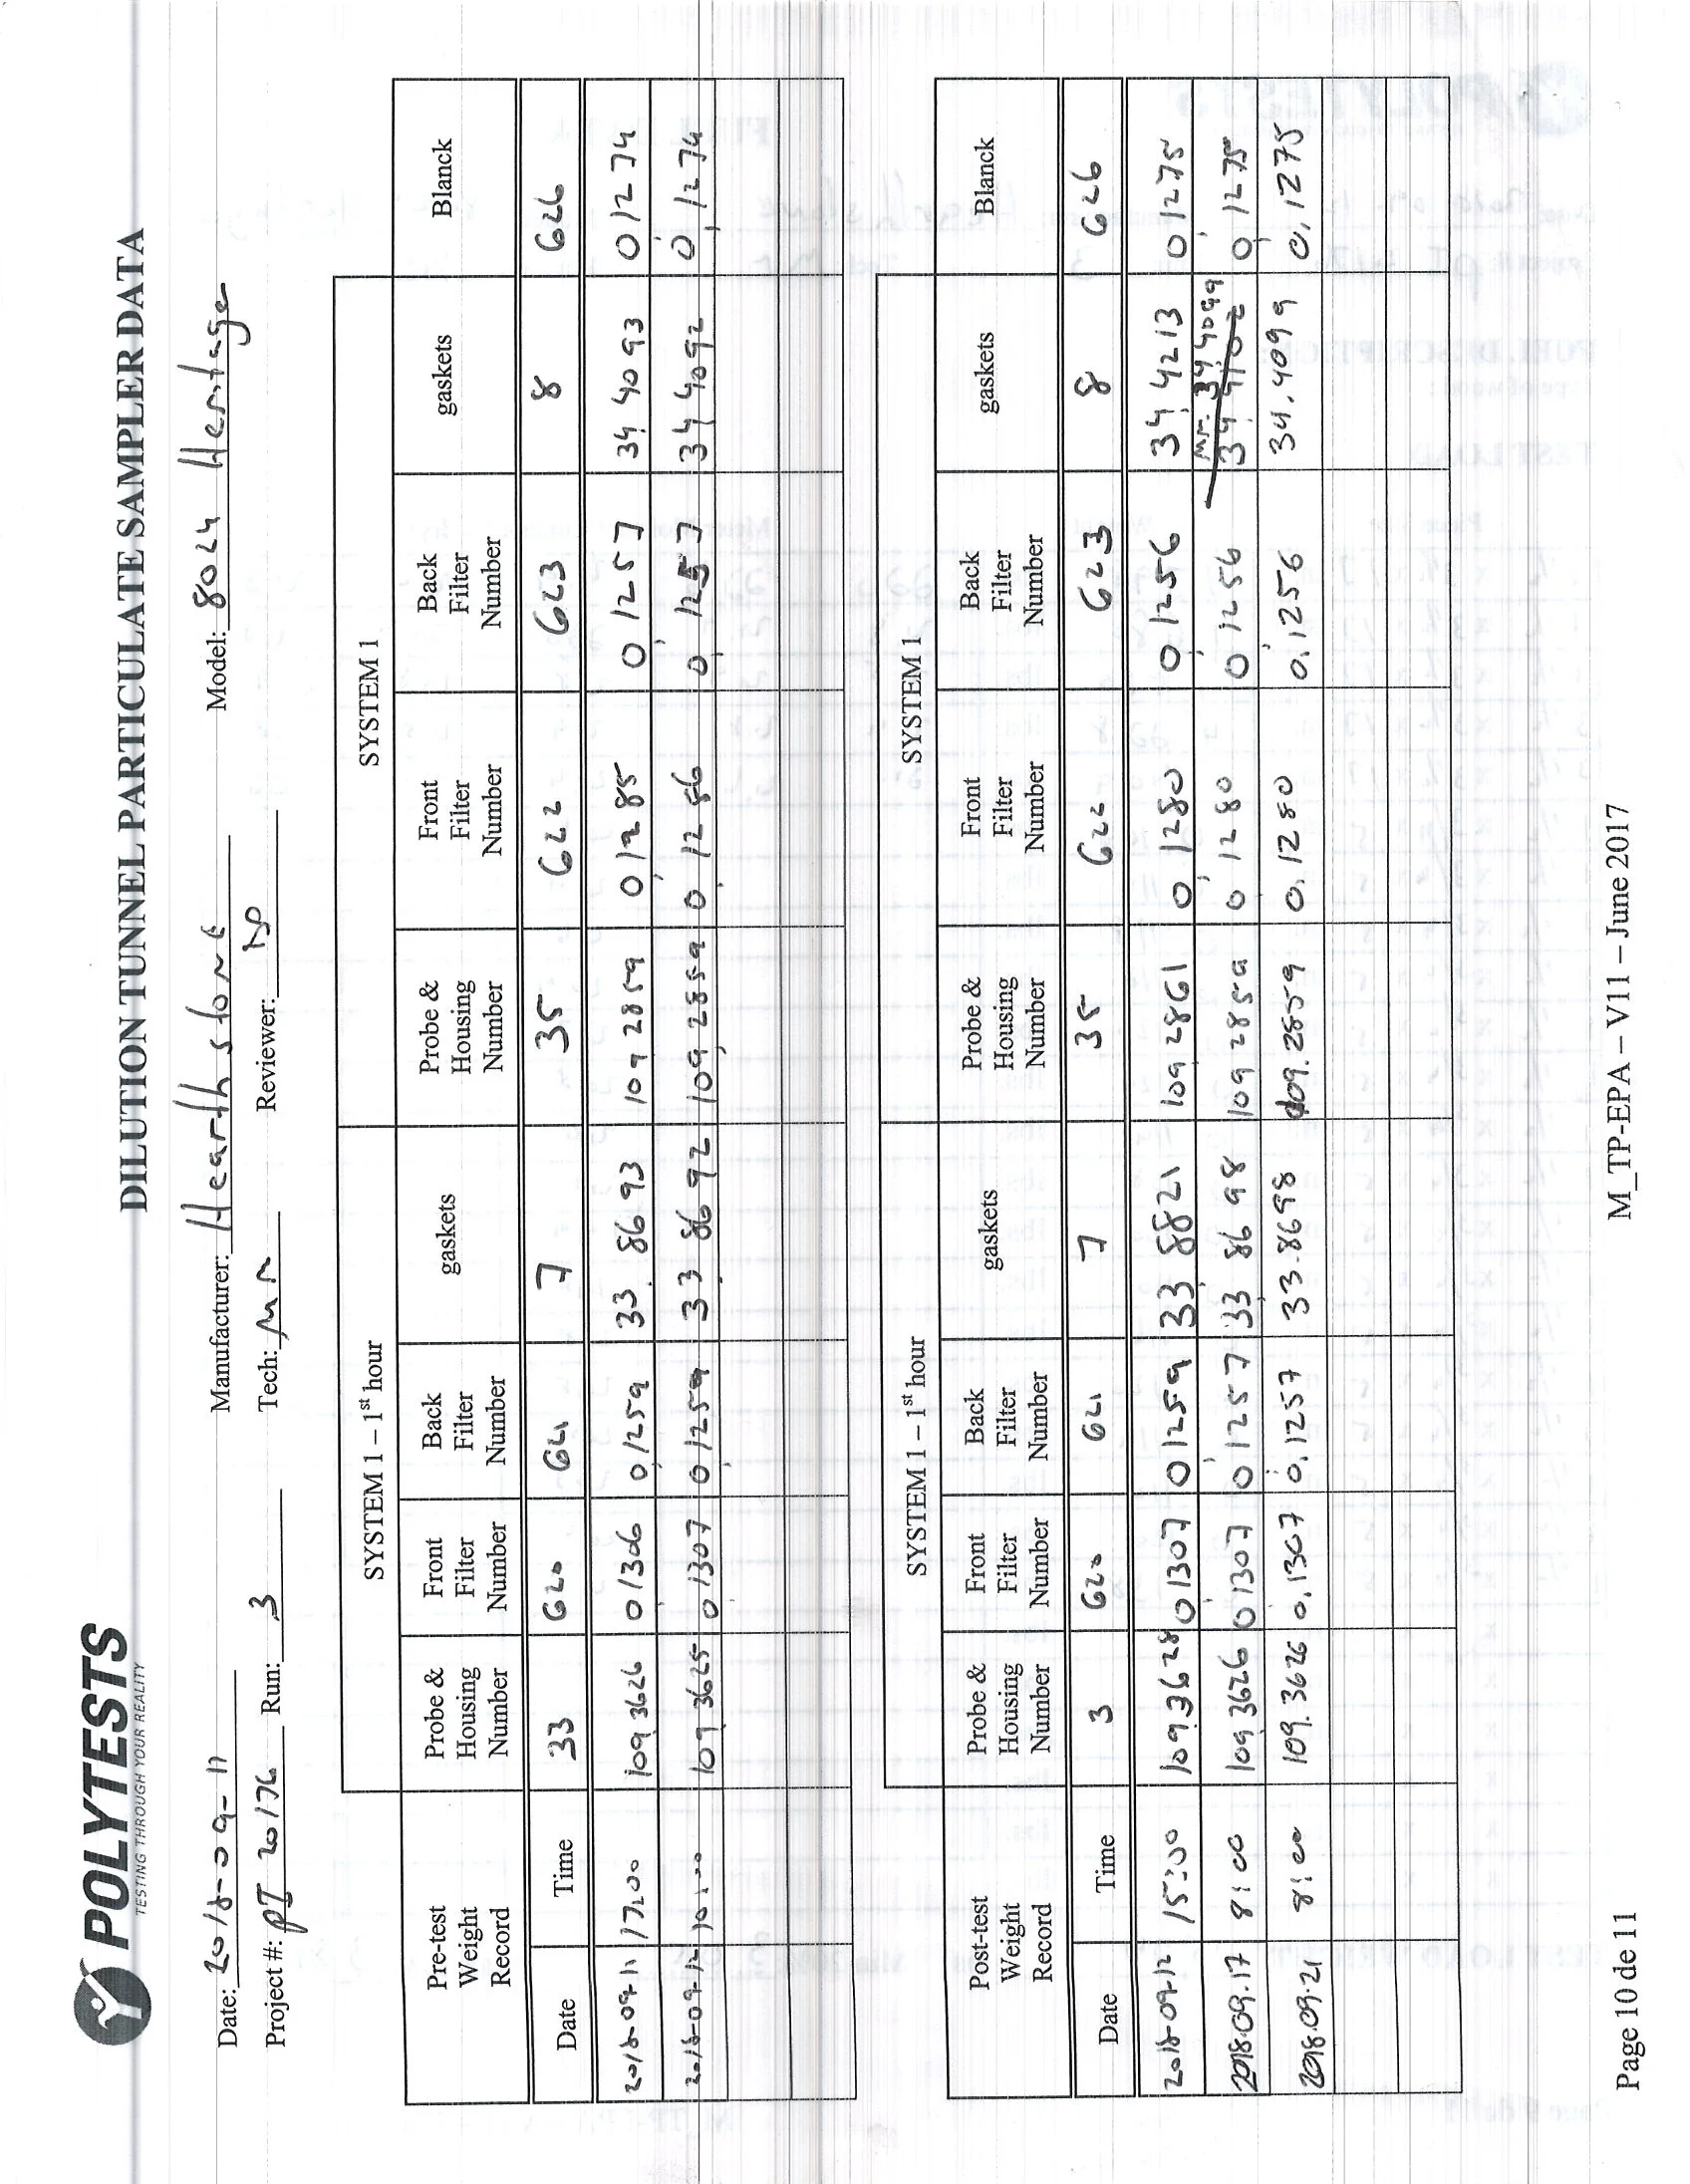 POLYTESTS
TESTING THROUGH YOUR REALITY
DILUTION TUNNEL PARTICULATE SAMPLER DATA
Date: 2018-09-11 Manufacturer: Hearthstone Model: 8024 Heritage
Project #: PI 20176 Run: 3 Tech: Reviewer:
SYSTEM 1 – 1st hour SYSTEM 1
Pre-test Weight Record Probe & Housing Number Front Filter Number Back Filter Number gaskets Probe & Housing Number Front Filter Number Back Filter Number gaskets Blanck
Date Time 33 620 621 7 35 622 623 8 626
2018-09-11 17:00 109,3626 0,1306 0,1259 33.8693 109 2859 0,1285 0,1257 34,4093 0,1274
2018-09-12 10:00 109,3625 0,1307 0,1259 33,8692 109,2859 0,1286 0,1257 34,4092 0,1274
SYSTEM 1 – 1st hour SYSTEM 1
Post-test Weight Record Probe & Housing Number Front Filter Number Back Filter Number gaskets Probe & Housing Number Front Filter Number Back Filter Number gaskets Blanck
Date Time 3 620 621 7 35 622 623 8 626
2018-09-12 15:00 109,3628 0,1307 0,1259 33,8821 109,2861 0,1280 0,1256 34,4213 0,1275
2018.09.17 8:00 109,3626 0,1307 0,1257 33,8698 109,2859 0,1280 0,1256 34,4102 34,4099 0,1275
2018.09.21 8:00 109.3626 0.1307 0.1257 33.8698 109.2859 0.1280 0.1256 34.4099 0.1275
Page 10 de 11 M_TP-EPA – V11 – June 2017